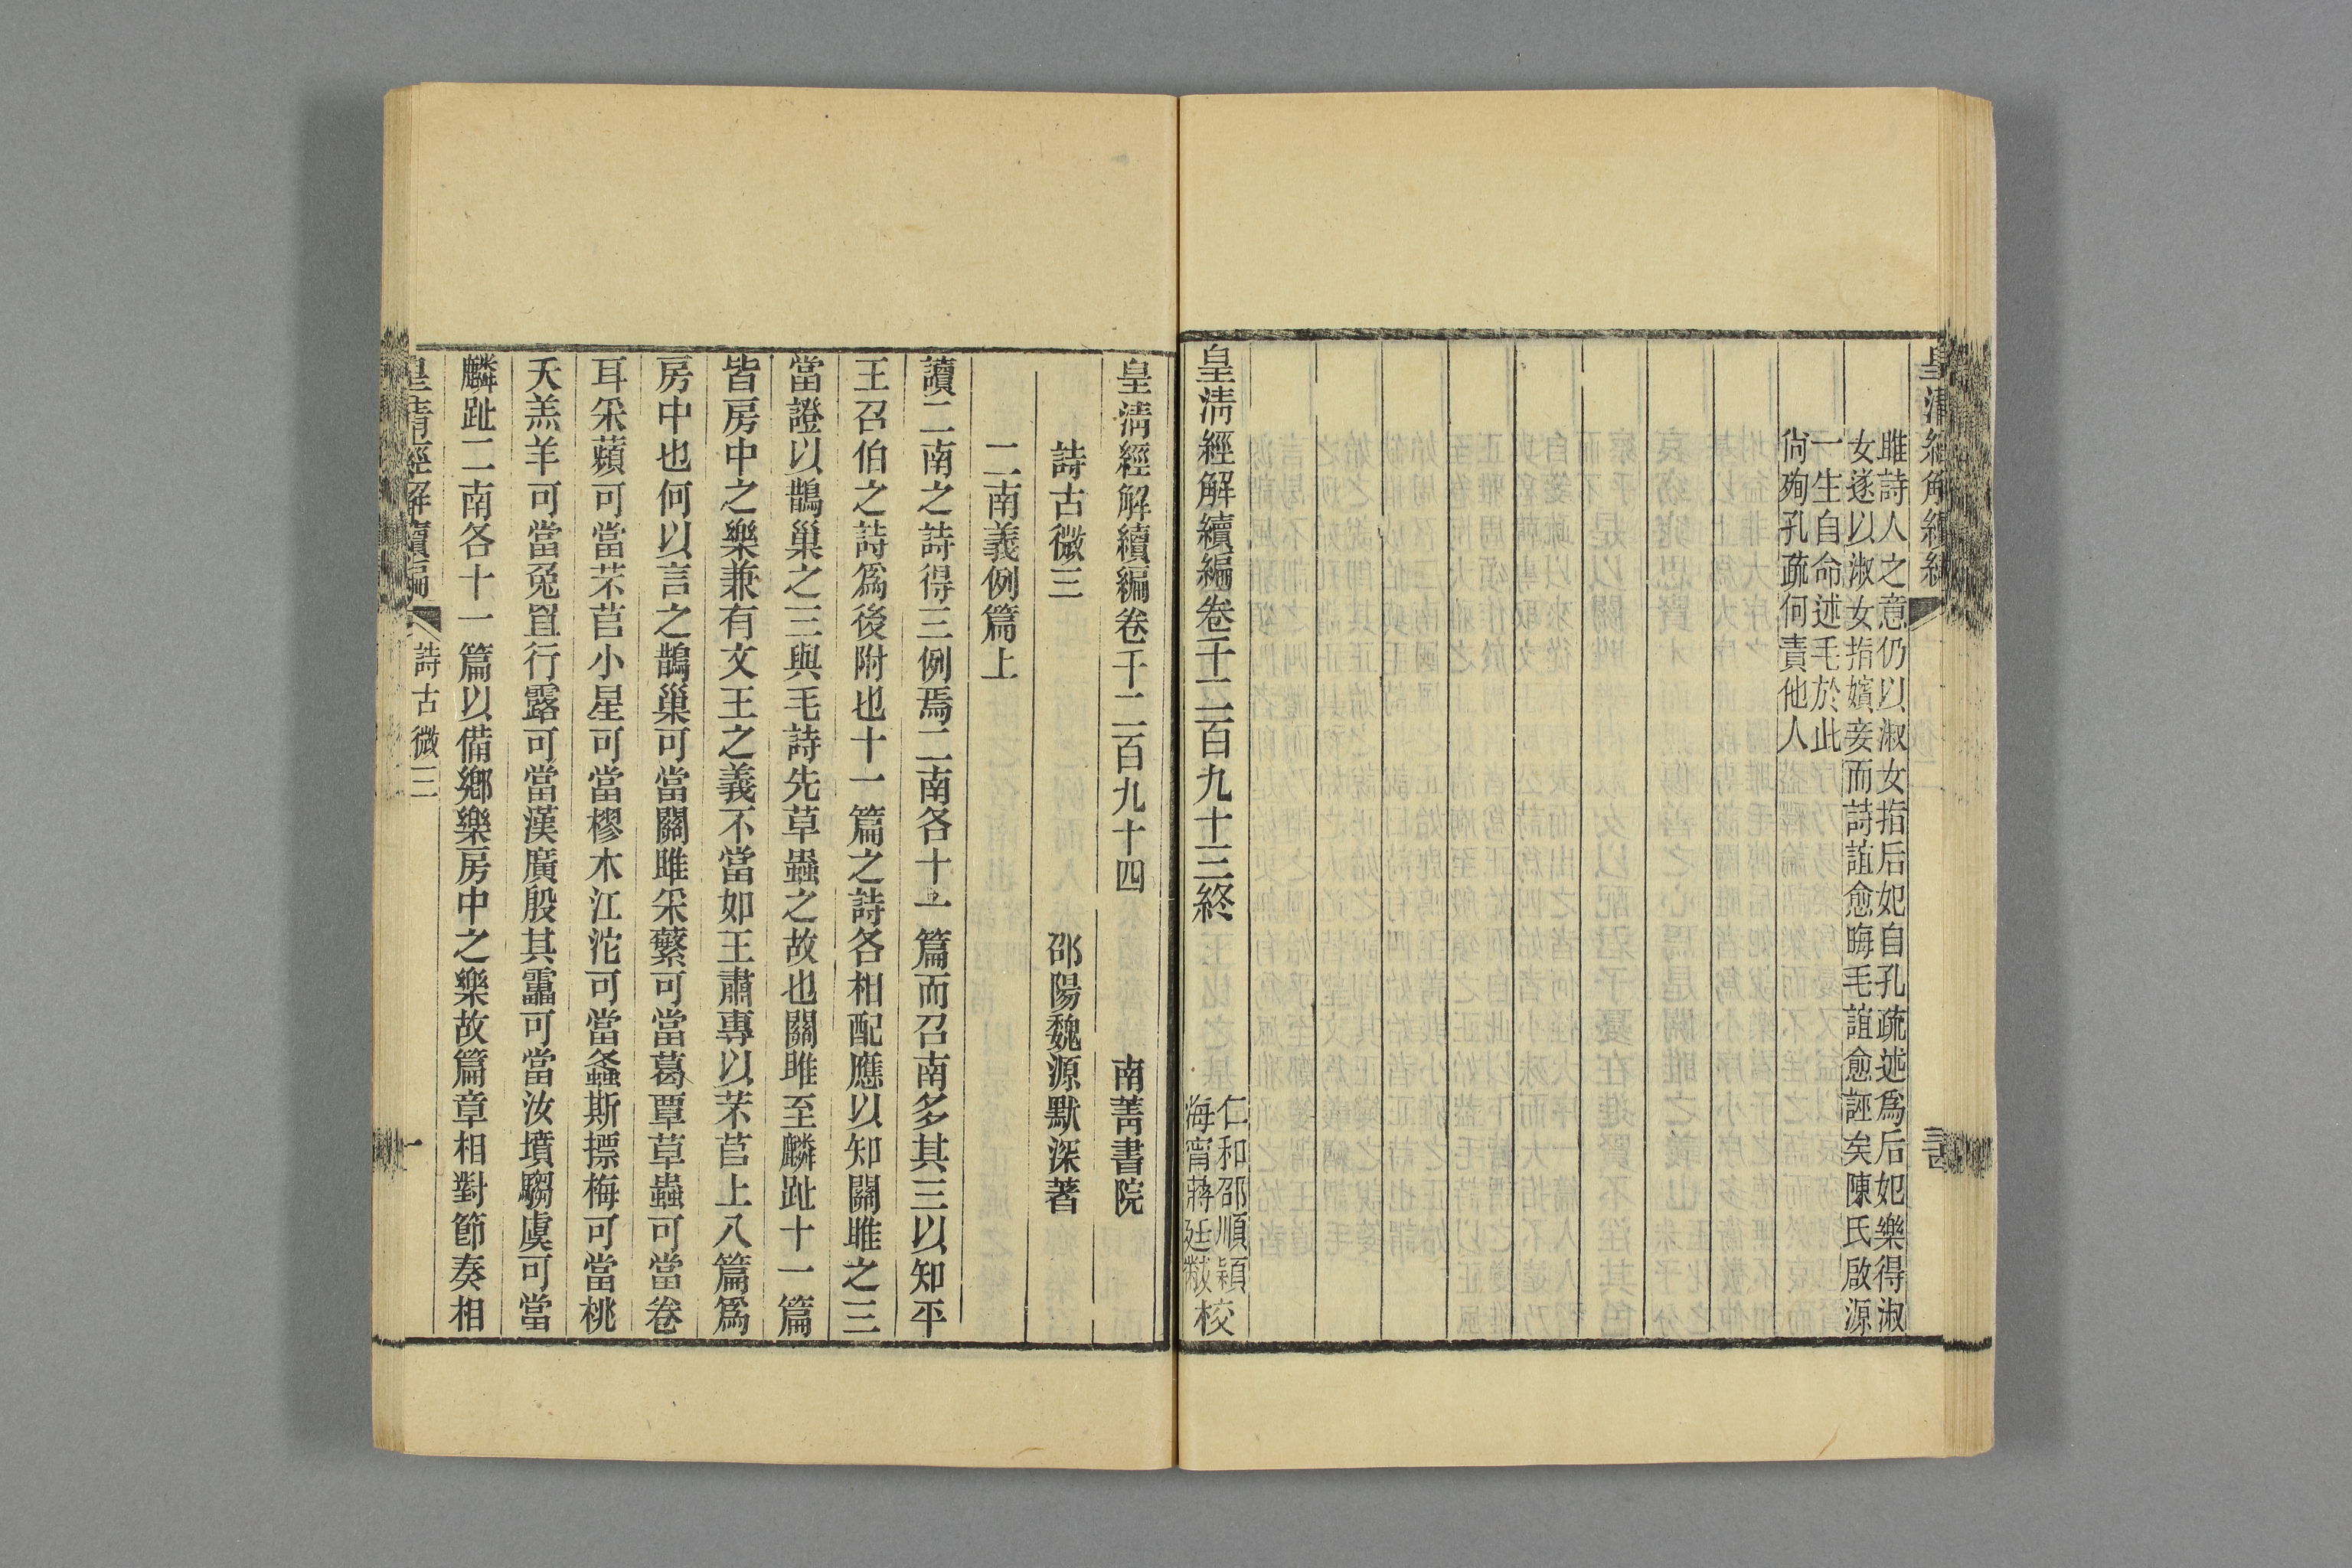 皇清經解續編
雎詩人之意仍以淑女指后妃自孔疏述爲后妃樂得淑
女遂以淑女指嬪妾而詩誼愈晦毛誼愈誣矣陳氏啟源
一生自命述毛於此
尙殉孔疏何責他人
皇清經解續編卷千二百九十三終
仁和邵順穎
海甯蔣廷黻
校
皇清經解續編卷千二百九十四 南菁書院
詩古微三 邵陽魏源默深著
二南義例篇上
讀二南之詩得三例焉二南各十一篇而召南多其三以知平
王召伯之詩爲後附也十一篇之詩各相配應以知關雎之三
當證以鵲巢之三與毛詩先草蟲之故也關雎至麟趾十一篇
皆房中之樂兼有文王之義不當如王肅專以芣苢上八篇爲
房中也何以言之鵲巢可當關雎采蘩可當葛覃草蟲可當卷
耳采蘋可當芣苢小星可當樛木江沱可當螽斯摽梅可當桃
夭羔羊可當兔罝行露可當漢廣殷其靁可當汝墳騶虞可當
麟趾二南各十一篇以備鄉樂房中之樂故篇章相對節奏相
皇清經解續編 詩古微三 一